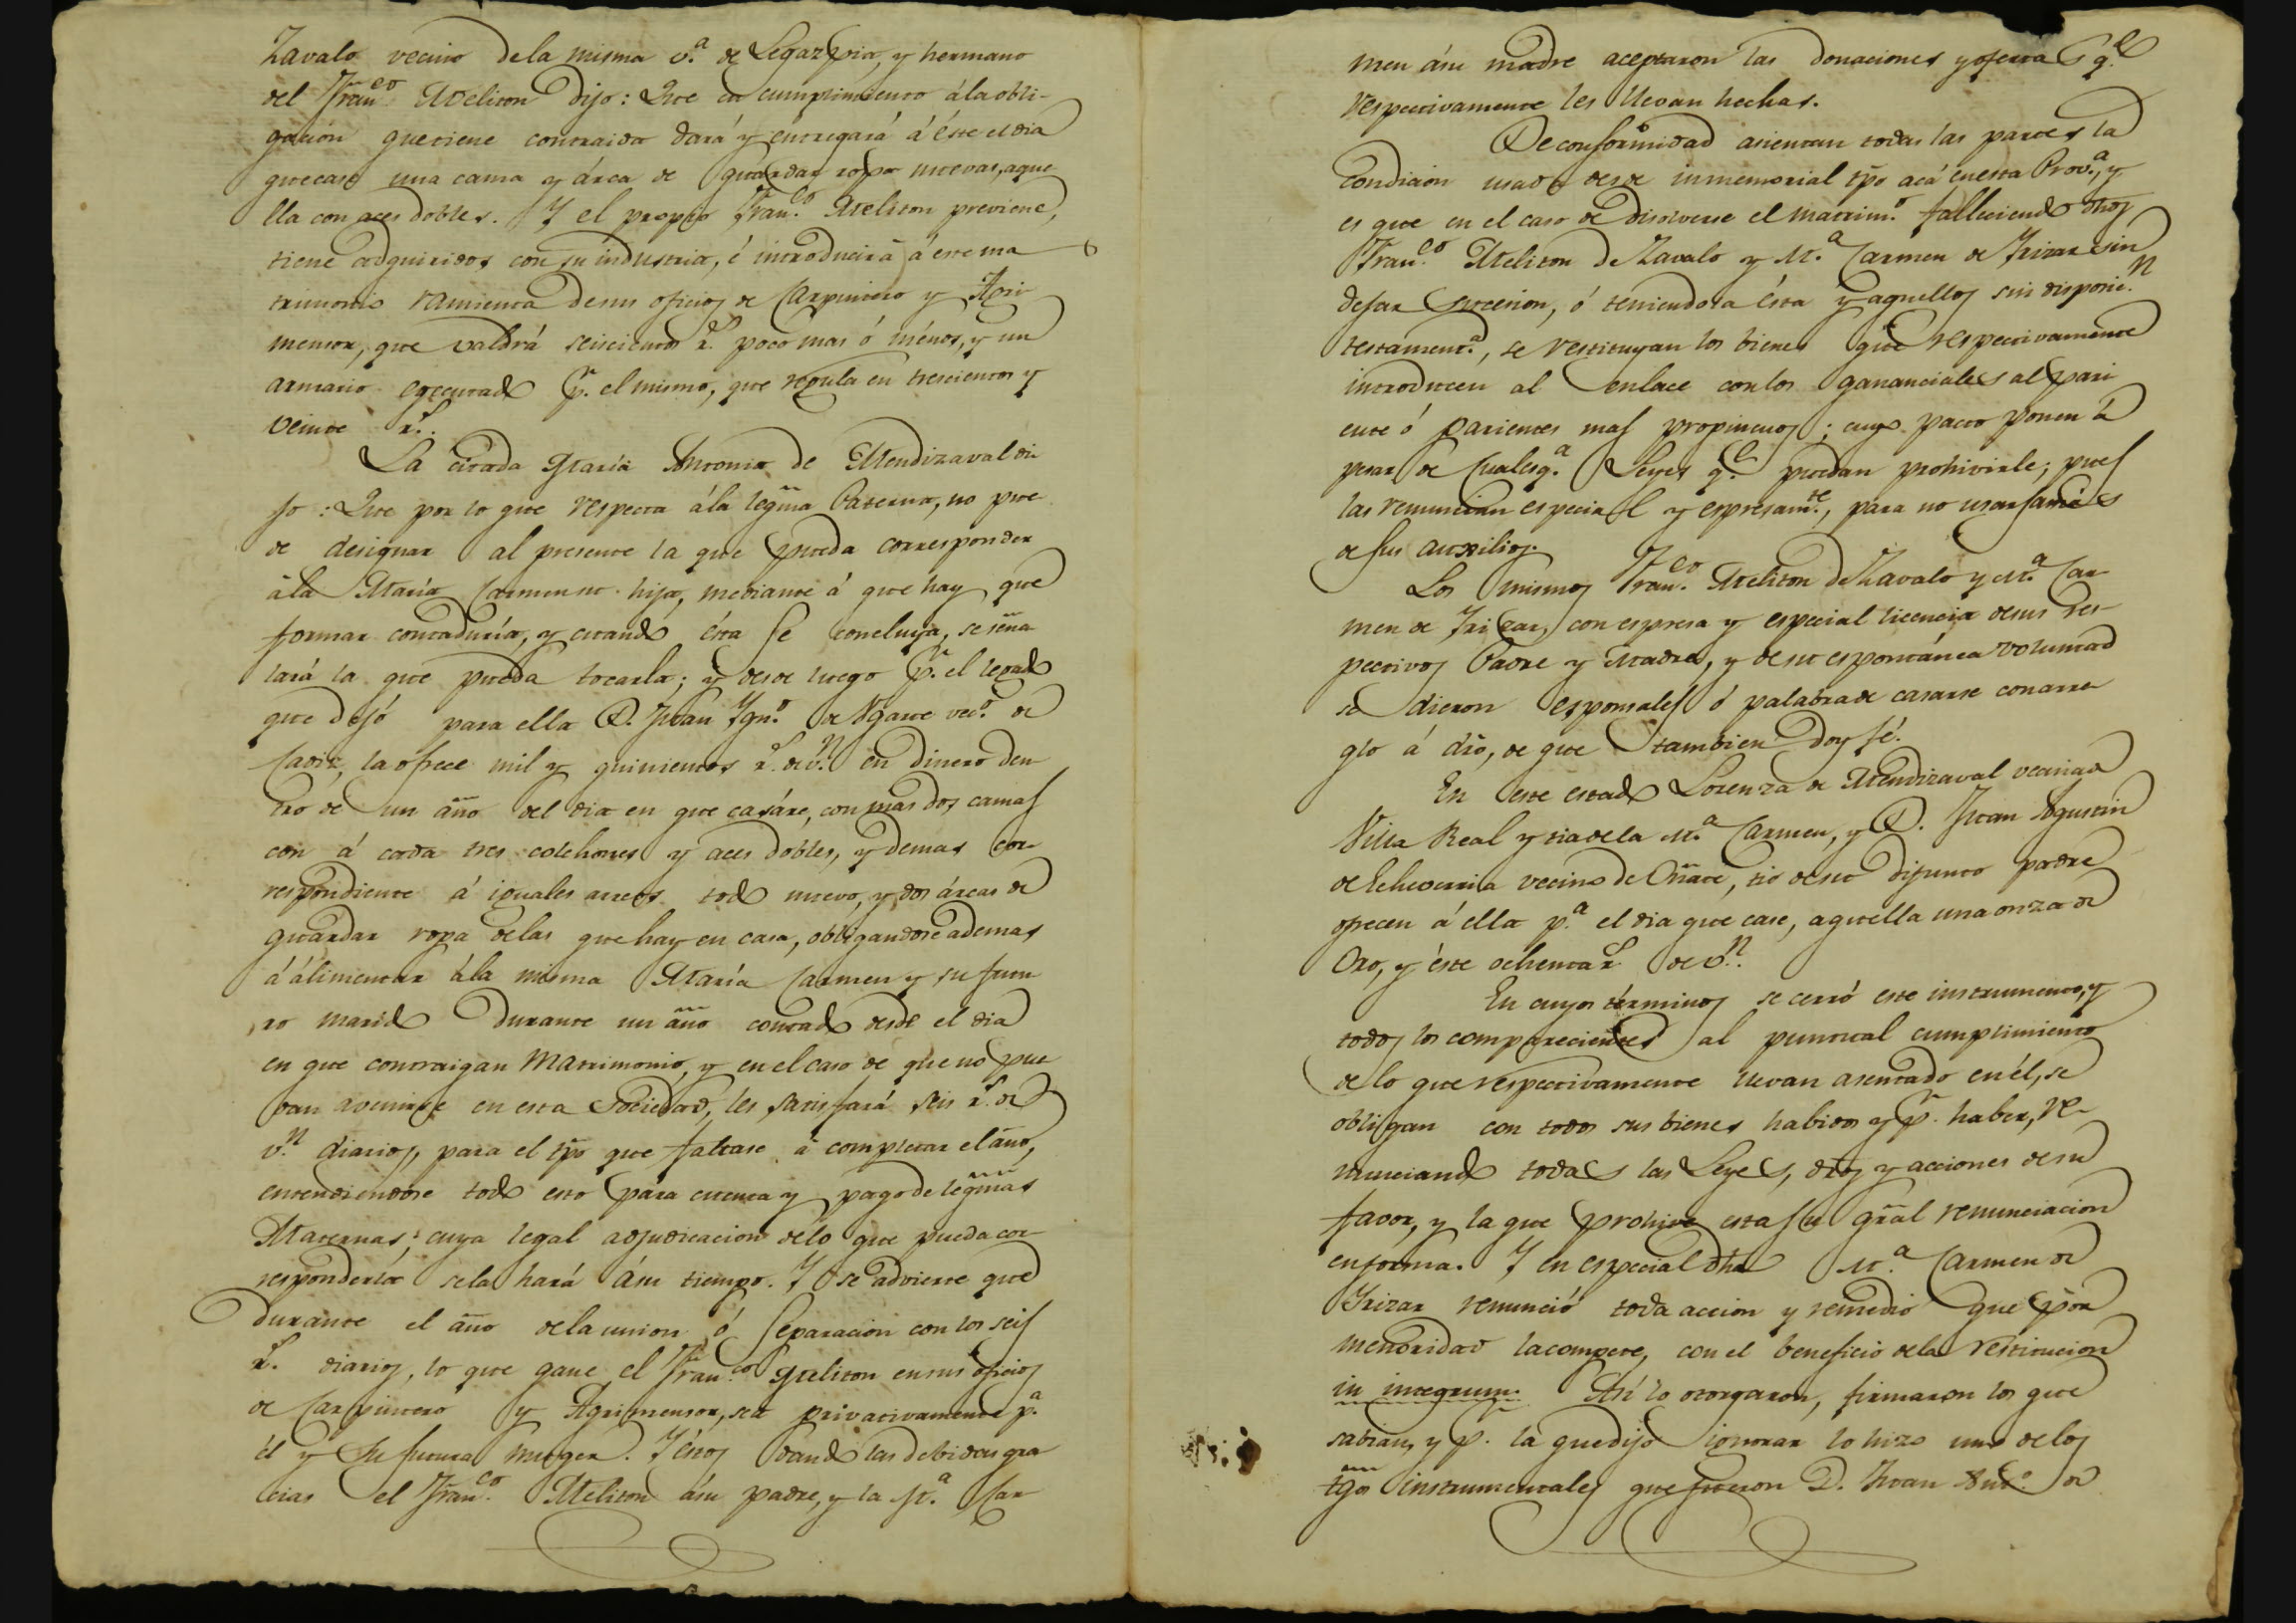 Zavalo vecino dela misma v.ª de Legazpia, y hermano
del Fran.co Meliton dijo: Que en cumplimiento á la obli-
gacion que tiene contraida dará y entregará á éste el dia
que case una cama y árca de guardar ropa nuevas, aque
lla con aces dobles. Y el propio Fran.co Meliton previene,
tiene adquiridos con su industria, é introducirá á este ma
trimonio ramienta de sus oficios de Carpintero y Agri
mensor, que valdrá seiscientos r.s poco mas ó ménos, y un
armario egecutado p.r el mismo, que regula en trescientos y
veinte r.s.
La citada María Antonia de Mendizaval di
jo: Que por lo que respecta á la legma Paterna, no pue
de designar al presente la que pueda corresponder
á la María Carmen su hija, mediante á que hay que
formar contaduría, y cuando ésta se concluya, se seña
lará la que pueda tocarla; y desde luego p.r el legado
que dejó para ella D. Juan Ygn.o de Ugarte vec.o de
Cadiz, la ofrece mil y quinientos r.s de v.n en dinero den
tro de un año del dia en que casáre, con mas dos camas
con á cada tres colchones y aces dobles, y demas cor
respondiente á iguales arreos todo nuevo, y dos árcas de
guardar ropa delas que hay en casa, obligandose ademas
á álimentar á la misma María Carmen y su futu
ro marido durante un año contado desde el dia
en que contraigan Matrimonio, y en el caso de que no pue
dan avenirse en esta Sociedad, les satisfará seis r.s de
v.n diarios, para el tpo que faltase á completar el año,
entendiendose todo esto para cuenta y pago de legmas
Maternas; cuya legal adjudicacion delo que pueda cor
responderla sela hará ásu tiempo. Y se advierte que
durante el año dela union ó separacion con los seis
r.s diarios, lo que gane el Fran.co Meliton en sus oficios
de Carpintero y Agrimensor, sea privativamente p.a
él y su futura muger. Y éstos dando las debidas gra
cias el Fran.co Meliton ásu padre, y la M.a Car
men ásu madre aceptaron las donaciones y ofertas q.e
respectivamente les llevan hechas.
De conformidad asientan todas las partes la
Condicion usada desde inmemorial tpo acá en esta Prov.a, y
es que en el caso de disolverse el matrim.o falleciendo dhos
Fran.co Meliton de Zavalo y M.a Carmen de Yrizar sin
dejar sucesion, ó teniendola ésta y aquellos sin disposic.n
testament.a, se restituyan los bienes que respectivamente
introducen al enlace con los gananciales al pari
ente ó parientes mas propincuos; cuyo pacto ponen á
pesar de cualesq.a Leyes q.e puedan prohivirle; pues
las renuncian especial y espresam.te, para no usar jamás
de sus auxilios.
Los mismos Fran.co Meliton de Zavalo y M.a Car
men de Yrizar, con espresa y especial licencia desus res-
pectivos Padre y Madre, y de su espontánea voluntad
se dieron esponsales ó palabra de casarse con arre
glo á dro, de que tambien doy fé.
En este estado Lorenza de Mendizaval vecina de
Villa Real y tia dela M.a Carmen, y D. Juan Agustin
de Echeverria vecino de Oñate, tio de su difunto padre
ofrecen á ella p.a el dia que case, aquella una onza de
Oro, y éste ochenta r.s de v.n.
En cuyos términos se cerró este instrumento, y
todos los comparecientes al puntual cumplimiento
de lo que respectivamente llevan asentado en él, se
obligan con todos sus bienes habidos y p.r haber, re-
nunciando todas las Leyes, dros y acciones de su
favor, y la que prohive esta su gral renunciacion
en forma. Y en especial dha M.a Carmen de
Yrizar renunció toda accion y remedio que por
menoridad la compete, con el beneficio dela restitucion
in integrum. Así lo otorgaron, firmaron los que
sabian, y p.r la que dijo ignorar lo hizo uno de los
tgos instrumentales que fueron D. Juan Ant.o de